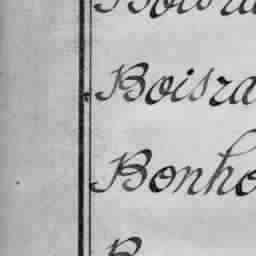 Boisra
Bonho